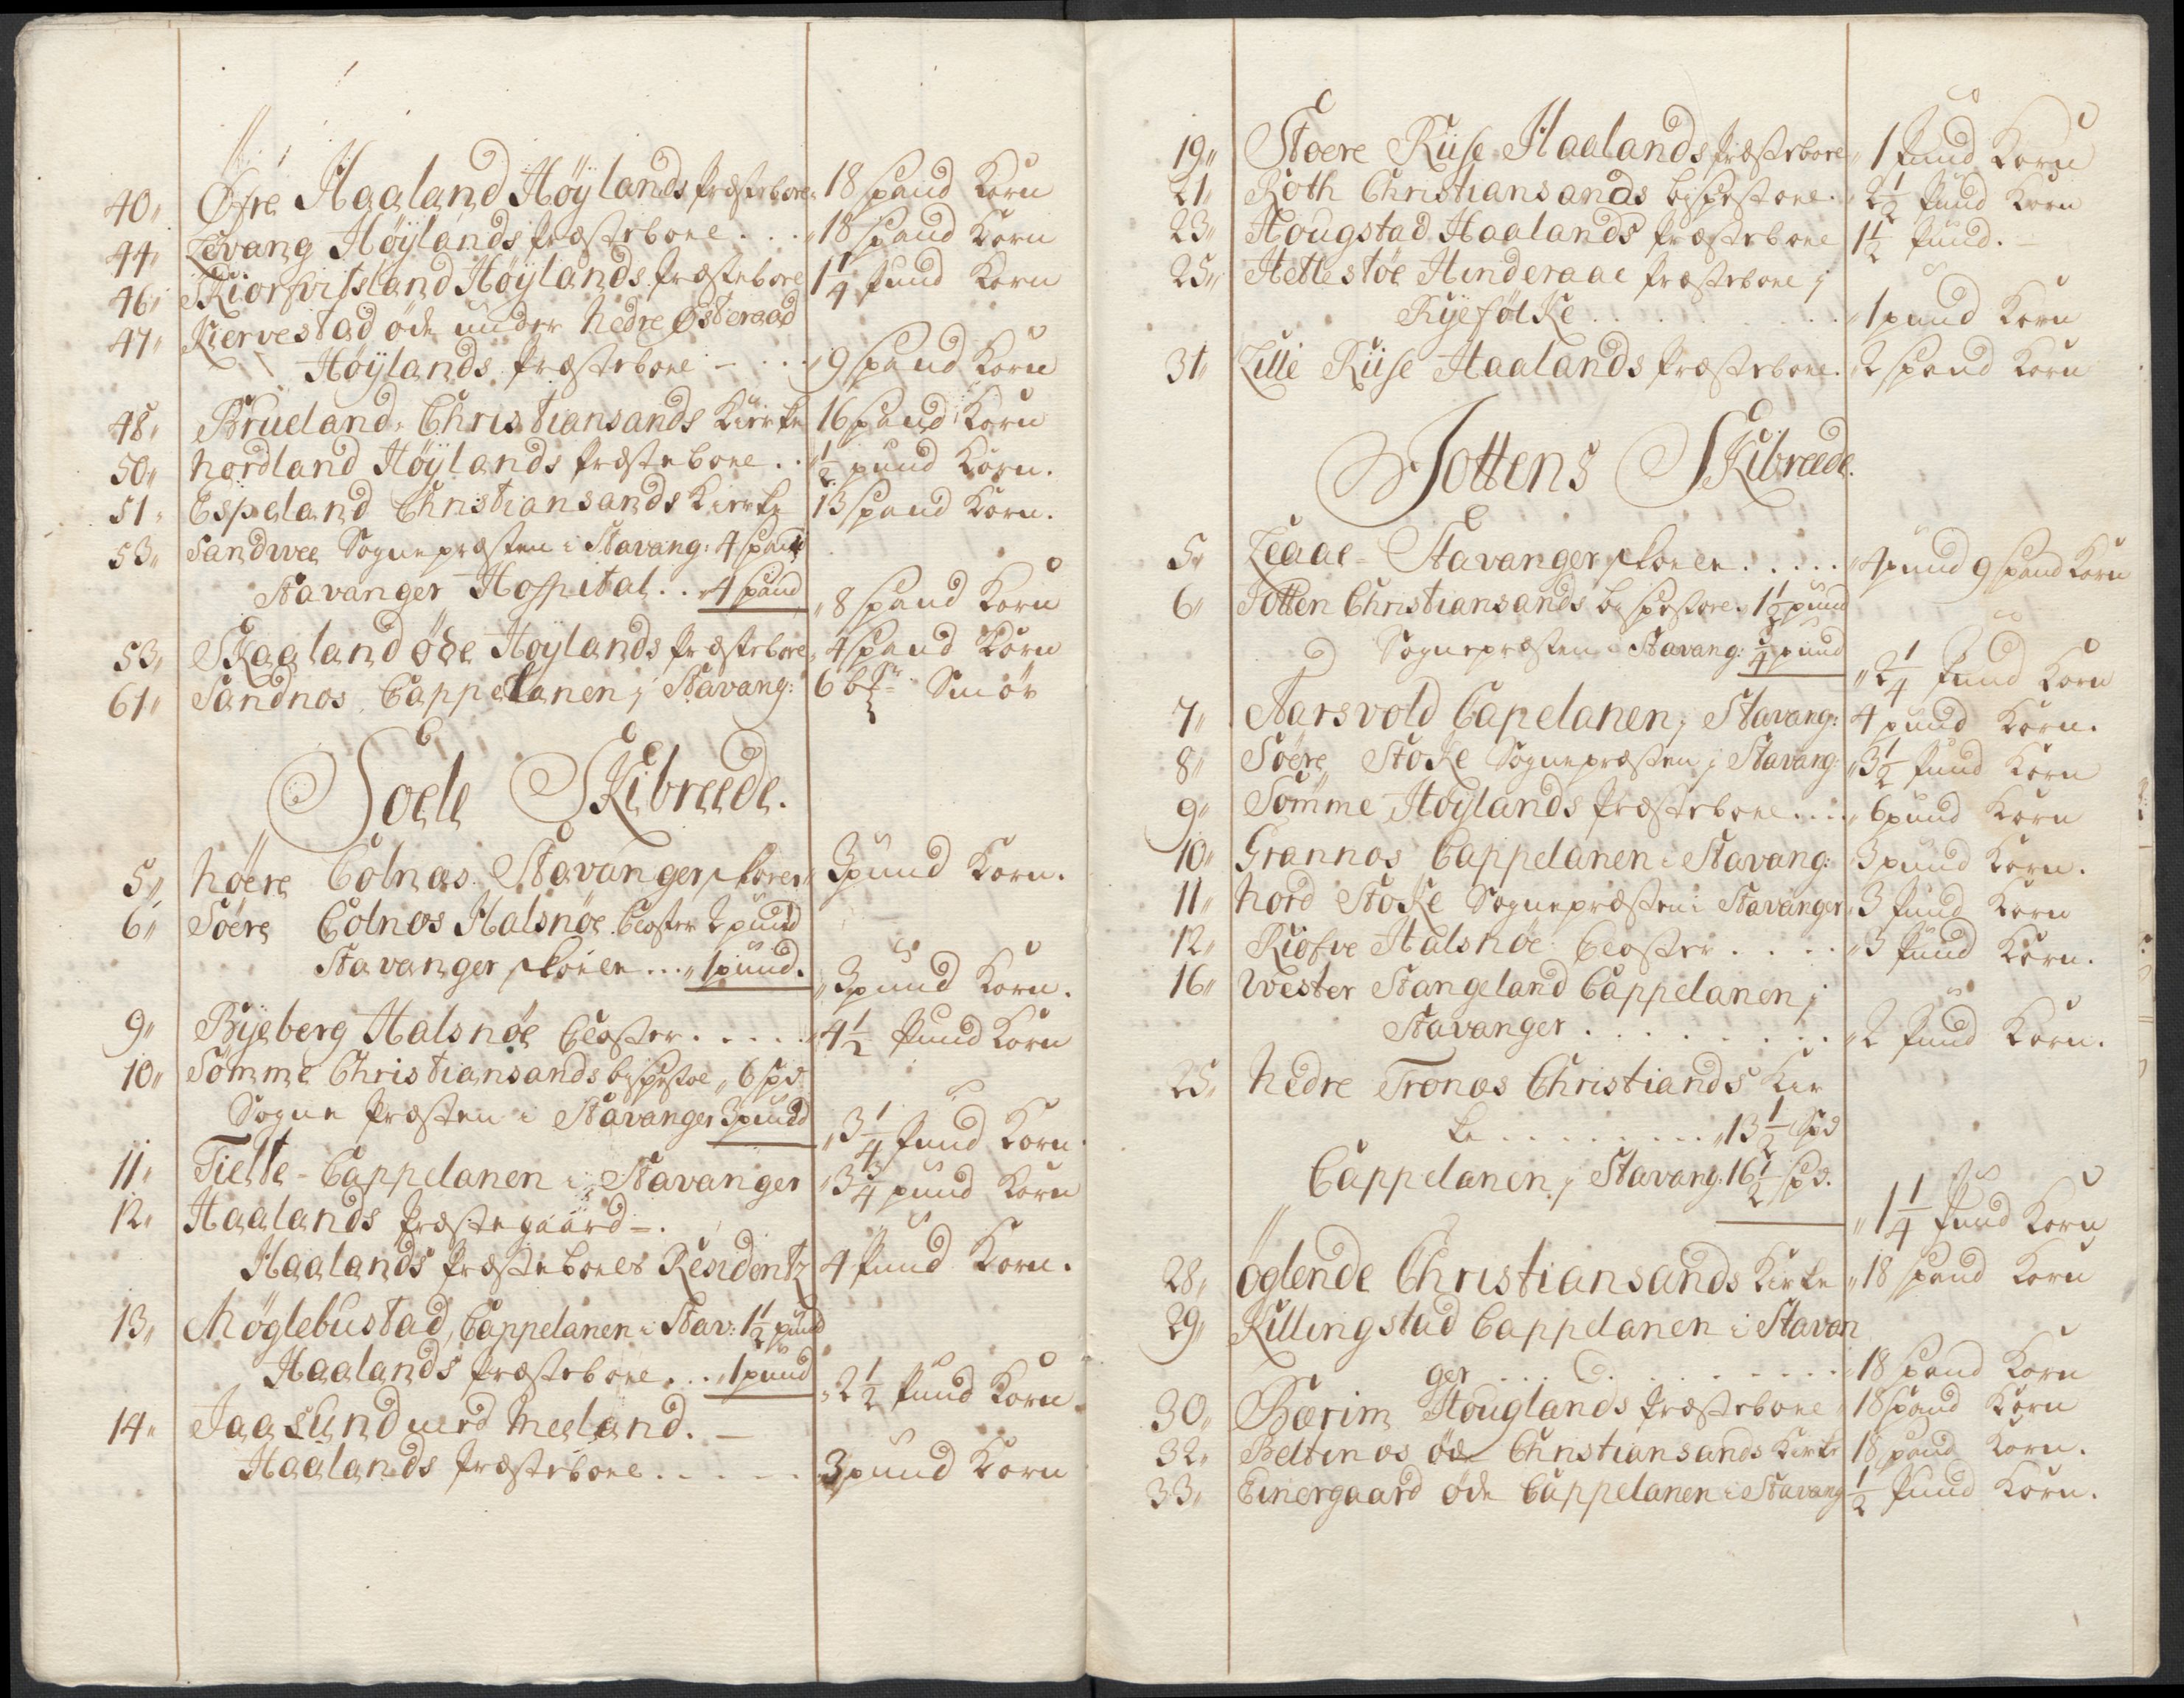 40 Øfre Haaland Høylands Præstebore 18 spand Korn
44 Levang Høylands Præstebore . . . 18 spand Korn
46 Skiorsvisland Høylands Præstebore 1 1/4 pund Korn
47 Kiervestad øde under Nedre Østeraad
Høylands Præstebore - . . . 9 spand Korn
48 Brueland, Christiansands Kirke 16 spand Korn
50 Nordland Høylands Præstebore . . 1/2 pund Korn.
51 Espeland Christiansands Kirke 13 spand Korn.
53 Sandwee Sognepræsten i Stavang: 4 spand
Stavanger Hospital . . 4 spand 8 spand Korn
53 Skaaland øde Høylands Præstebore 4 spand Korn
61 Sandnos Cappelanen j Stavang: 6 Smør
Soele Skibreede.
5 Nøere Colnæs Stavanger skoven 3 pund Korn.
6 Søere Colnos Halsnøe Closter 2 pund
Stavanger skolen . . . 1 pund. 3 pund Korn.
9 Byeberg Halsnøe Closter . . . . . 4 1/2 Pund Korn
10 Sømme Christiansands bispestoe 6 spd
Sogne Præsten i Stavanger 3 pund 3 1/4 Pund Korn.
11 Tielte - Cappelanen i Stavanger 3 3/4 pund Korn
12 Haalands Præstegaard - .
Haalands Præstebores Residentz 4 Pund Korn.
13 Møglebustad, Cappelanen i Stav: 1 1/2 pund
Haalands Præstebore . . . 1 pund 2 1/2 Pund Korn.
14 Jaasund med Meeland. -
Haalands Præstebore . . . . . 3 pund Korn
19 Stoere Riise Haalands Præstebore 1 Pund Korn
21 Roth Christiansands bispestoel. 2 1/2 Pund Korn
23 Hougstad Haalands Præstebore 1 1/2 Pund.
25 Hettestøe Hinderaae Præstebore j
Ryefølke . . . . . . . . . 1 pund Korn
31 Lille Riise Haalands Præstebore. 2 spand Korn
Jottens Skibreede.
5 Leaae - Stavanger skolen . . . . . 4 pund 9 spand Korn
6 Jotten Christiansands bispestoel 1 1/2 pund
Sognepræsten i Stavang: 3/4 pund 2 1/4 Pund Korn
7 Aarsvold Capelanen j Stavang: 4 pund Korn.
8 Søere Stoke Sognepræsten j Stavang: 3 1/2 Pund Korn
9 Sømme Høylands Præstebore . . . . 6 pund Korn
10 Grannos Cappelanen i Stavang: 3 pund Korn.
11 Nord Stoke Sognepræsten i Stavanger 3 Pund Korn
12 Riofve Halsnøe Closter . . . . 3 Pund Korn.
16 Wester Stangeland Cappelanen j
Stavanger . . . . . . . . 2 Pund Korn.
25 Nedre Tronæs Christiands Kir
ke . . . . . . . . . . 13 1/2 Spd
Cappelanen j Stavang: 16 1/2 spd. 1 1/4 Pund Korn
28 øglende Christiansands Kirke 18 spand Korn
29 Killingstad Cappelanen i Stavan
ger . . . . . . . . . . . 18 spand Korn
30 Bærim Houglands Præstebore 18 spand Korn
32 Beltinæs øde Christiansands Kirke 18 spand Korn.
33 Einergaard øde Cappelanen i Stavang 1/2 Pund Korn.